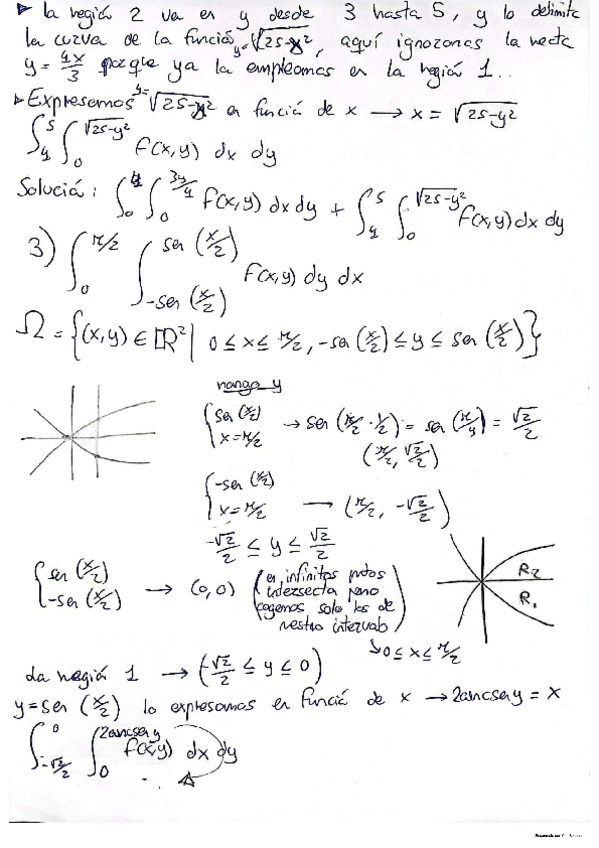 ▸ la región 2 va en y desde 3 hasta 5, y lo delimita
la curva de la función y=√(25-x²), aquí ignoramos la recta
y = 4x/3 porque ya la empleamos en la región 1..
▸ Expresemos y=√(25-x²) en función de x → x = √(25-y²)
∫₄⁵ ∫₀^√(25-y²) f(x,y) dx dy
Solución: ∫₀⁴ ∫₀^(3y/4) f(x,y) dx dy + ∫₄⁵ ∫₀^√(25-y²) f(x,y) dx dy
3) ∫₀^(π/2) ∫_(-sen(x/2))^(sen(x/2)) f(x,y) dy dx
Ω = {(x,y) ∈ ℝ² | 0 ≤ x ≤ π/2, -sen(x/2) ≤ y ≤ sen(x/2)}
rango y
{sen(x/2)
x=π/2 → sen(π/2 · 1/2) = sen(π/4) = √2/2
(π/2, √2/2)
{-sen(x/2)
x=π/2 → (π/2, -√2/2)
-√2/2 ≤ y ≤ √2/2
{sen(x/2)
-sen(x/2) → (0,0)
(en infinitos ptos
intersecta pero
cogemos solo los de
nuestro intervalo)
↳ 0 ≤ x ≤ π/2
R2
R1
La región 1 → (-√2/2 ≤ y ≤ 0)
y = sen(x/2) lo expresamos en función de x → 2arcsen y = x
∫_(-√2/2)^0 ∫₀^(2arcsen y) f(x,y) dx dy